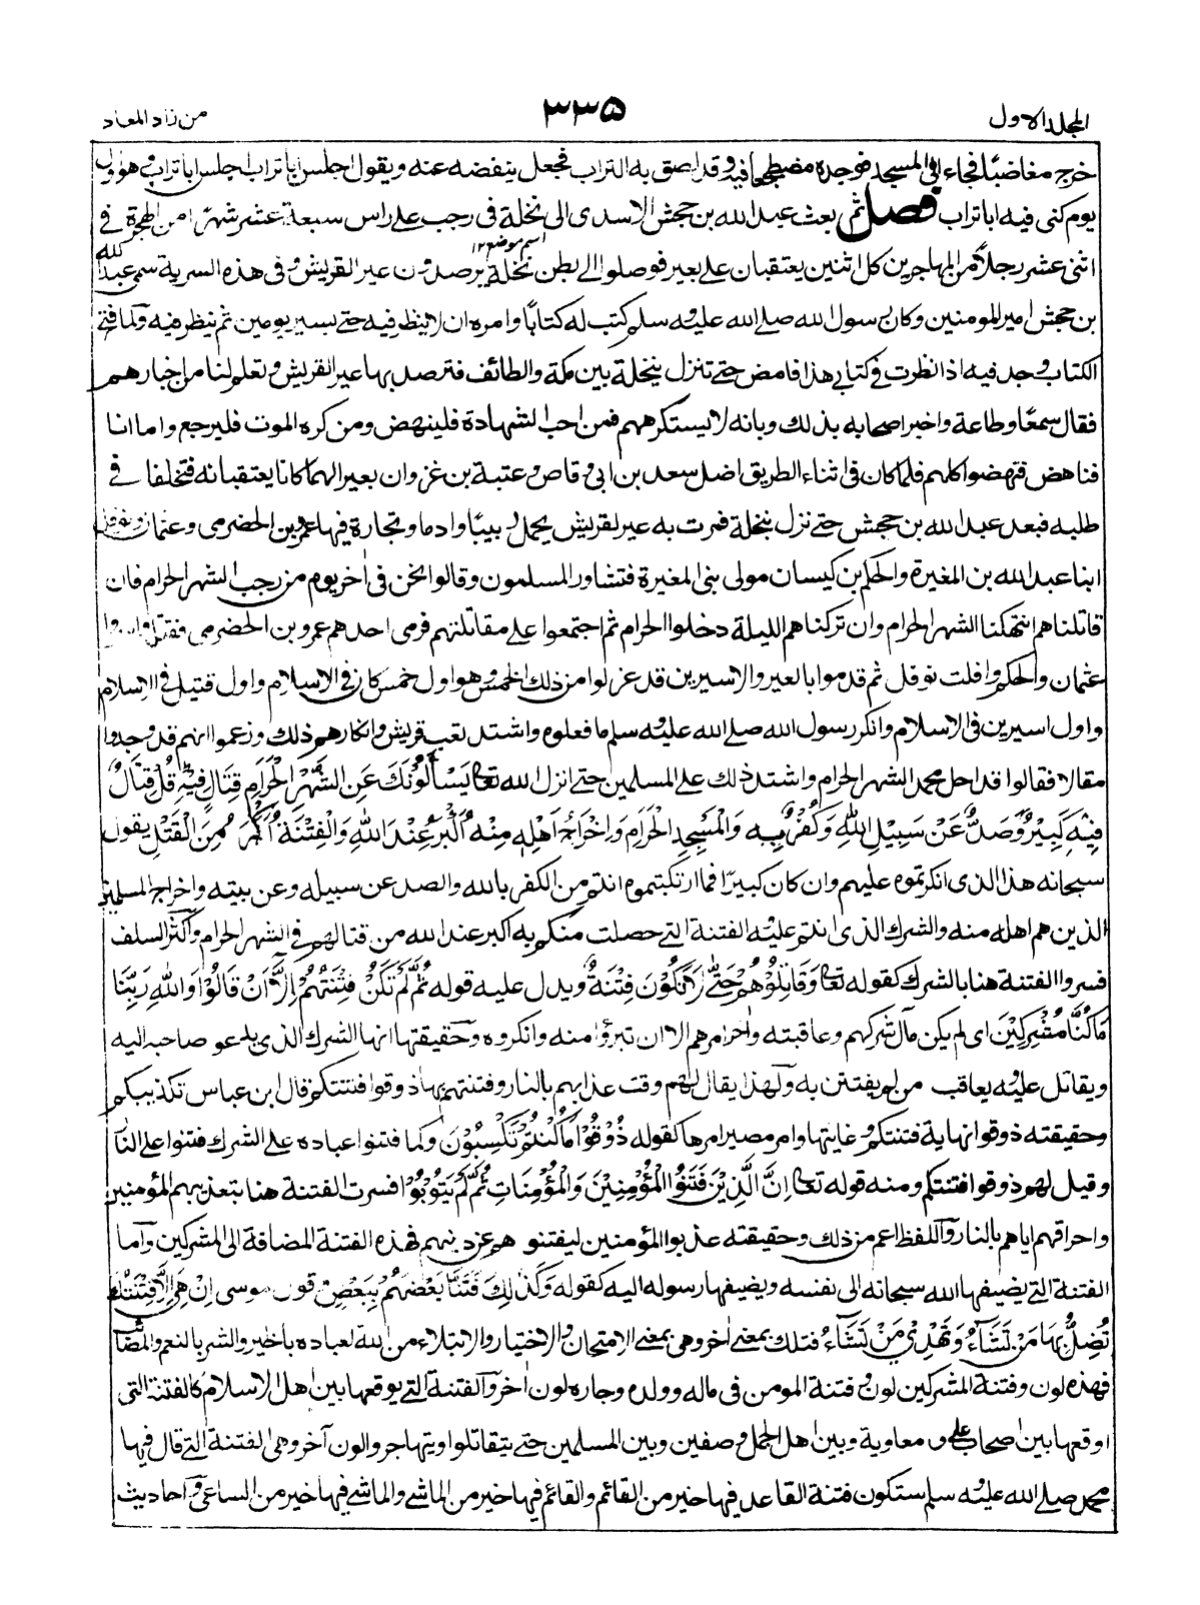 المجلد الاول
٣٣٥
من زاد المعاد
خرج مغاضبًا فجاء الى المسجد فوجده مضطجعا فيه وقد لصق به التراب فجعل ينفضه عنه ويقول اجلس اباتراب اجلس اباتراب وهو اول
يوم كنى فيه اباتراب فصل ثم بعث عبدالله بن جحش الاسدى الى نخلة فى رجب على راس سبعة عشر شهرًا من الهجرة فى
اسم موضع ١٢
اثنى عشر رجلاً من المهاجرين كل اثنين يعتقبان على بعير فوصلوا الى بطن نخلة يرصدون عير القريش وفى هذه السرية سمى عبدالله
بن جحش امير المومنين وكان رسول الله صلى الله عليه وسلم كتب له كتابًا وامره ان لا ينظر فيه حتى يسير يومين ثم ينظر فيه ولما فتح
الكتاب وجد فيه اذا نظرت فى كتابى هذا فامض حتى تنزل بنخلة بين مكة والطائف فترصد بها عير القريش وتعلم لنا من اخبارهم
فقال سمعًا وطاعة واخبر اصحابه بذلك وبانه لا يستكرههم فمن احب الشهادة فلينهض ومن كره الموت فليرجع واما انا
فناهض فنهضوا كلهم فلما كان فى اثناء الطريق اضل سعد بن ابى وقاص وعتبة بن غزوان بعيرا لهما كانا يعتقبانه فتخلفا فى
طلبه فبعد عبدالله بن جحش حتى نزل بنخلة فمرت به عير لقريش يحمل زبيبًا وادما وتجارة فيها عمرو بن الحضرمى وعثمان ونوفل
ابنا عبدالله بن المغيرة والحكم بن كيسان مولى بنى المغيرة فتشاور المسلمون وقالوا نحن فى اخر يوم من رجب الشهر الحرام فان
قاتلناهم انتهكنا الشهر الحرام وان تركناهم الليلة دخلوا الحرام ثم اجتمعوا على مقاتلتهم فرمى احدهم عمرو بن الحضرمى فقتله واسروا
عثمان والحكم وافلت نوفل ثم قدموا بالعير والاسيرين قد عزلوا من ذلك الخمس وهو اول خمس كان فى الاسلام واول قتيل فى الاسلام
واول اسيرين فى الاسلام وانكر رسول الله صلى الله عليه وسلم ما فعلوه واشتد تعب قريش وانكارهم ذلك وزعموا انهم قد وجدوا
مقالا فقالوا قد احل محمد الشهر الحرام واشتد ذلك على المسلمين حتى انزل الله تعالى يَسْأَلُونَكَ عَنِ الشَّهْرِ الْحَرَامِ قِتَالٍ فِيْهِ قُلْ قِتَالٌ
فِيْهِ كَبِيْرٌ وَّصَدٌّ عَنْ سَبِيْلِ اللهِ وَكُفْرٌ بِهٖ وَالْمَسْجِدِ الْحَرَامِ وَاِخْرَاجُ اَهْلِهٖ مِنْهُ اَكْبَرُ عِنْدَ اللهِ وَالْفِتْنَةُ اَكْبَرُ مِنَ الْقَتْلِ يقول
سبحانه هذا الذى انكرتموه عليهم وان كان كبيرًا فما ارتكبتموه انتم من الكفر بالله والصد عن سبيله وعن بيته واخراج المسلمين
الذين هم اهله منه والشرك الذى انتم عليه الفتنة التى حصلت منكم به اكبر عند الله من قتالهم فى الشهر الحرام واكثر السلف
فسروا الفتنة هنا بالشرك كقوله تعالى وَقَاتِلُوْهُمْ حَتّٰى لَا تَكُوْنَ فِتْنَةٌ ويدل عليه قوله ثُمَّ لَمْ تَكُنْ فِتْنَتُهُمْ اِلَّا اَنْ قَالُوْا وَاللهِ رَبِّنَا
مَا كُنَّا مُشْرِكِيْنَ اى لم يكن مآل شركهم وعاقبته واخر امرهم الا ان تبرؤا منه وانكروه وحقيقتها انها الشرك الذى يدعو صاحبه اليه
ويقاتل عليه ويعاقب من لم يفتتن به ولهذا يقال لهم وقت عذابهم بالنار وفتنتهم بها ذوقوا فتنتكم قال ابن عباس تكذيبكم
وحقيقته ذوقوا نهاية فتنتكم وغايتها وامر مصير امرها كقوله ذُوْقُوْا مَا كُنْتُمْ تَكْسِبُوْنَ وكما فتنوا عباده على الشرك فتنوا على النار
وقيل لهم ذوقوا فتنتكم ومنه قوله تعالى اِنَّ الَّذِيْنَ فَتَنُوا الْمُؤْمِنِيْنَ وَالْمُؤْمِنَاتِ ثُمَّ لَمْ يَتُوْبُوْا فسرت الفتنة هنا بتعذيبهم المؤمنين
واحراقهم اياهم بالنار واللفظ اعم من ذلك وحقيقته عذبوا المؤمنين ليفتنوهم عن دينهم فهذه الفتنة المضافة الى المشركين واما
الفتنة التى يضيفها الله سبحانه الى نفسه ويضيفها رسوله اليه كقوله وَكَذٰلِكَ فَتَنَّا بَعْضَهُمْ بِبَعْضٍ وقول موسى اِنْ هِىَ اِلَّا فِتْنَتُكَ
تُضِلُّ بِهَا مَنْ تَشَآءُ وَتَهْدِىْ مَنْ تَشَآءُ فتلك بمعنى اخر وهى بمعنى الامتحان والاختيار والابتلاء من الله لعباده بالخير والشر بالنعم والمصائب
فهذه لون وفتنة المشركين لون وفتنة المومن فى ماله وولده وجاره لون اخر والفتنة التى يوقعها بين اهل الاسلام كالفتنة التى
اوقعها بين اصحاب على و معاوية وبين اهل الجمل وصفين وبين المسلمين حتى يتقاتلوا ويتهاجروا لون آخر وهى الفتنة التى قال فيها
محمد صلى الله عليه وسلم ستكون فتنة القاعد فيها خير من القائم والقائم فيها خير من الماشى والماشى فيها خير من الساعى وفى احاديث